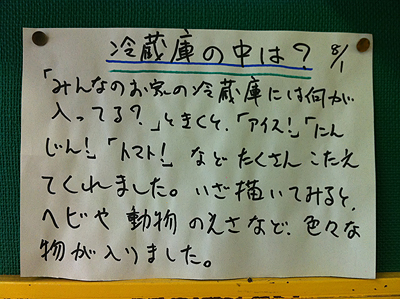 冷蔵庫の中は? 8/1
「みんなのお家の冷蔵庫には何が
入ってる?」ときくと、「アイス!」「にん
じん!」「トマト!」などたくさんこたえ
てくれました。いざ描いてみると、
ヘビや動物のえさなど、色々な
物が入りました。